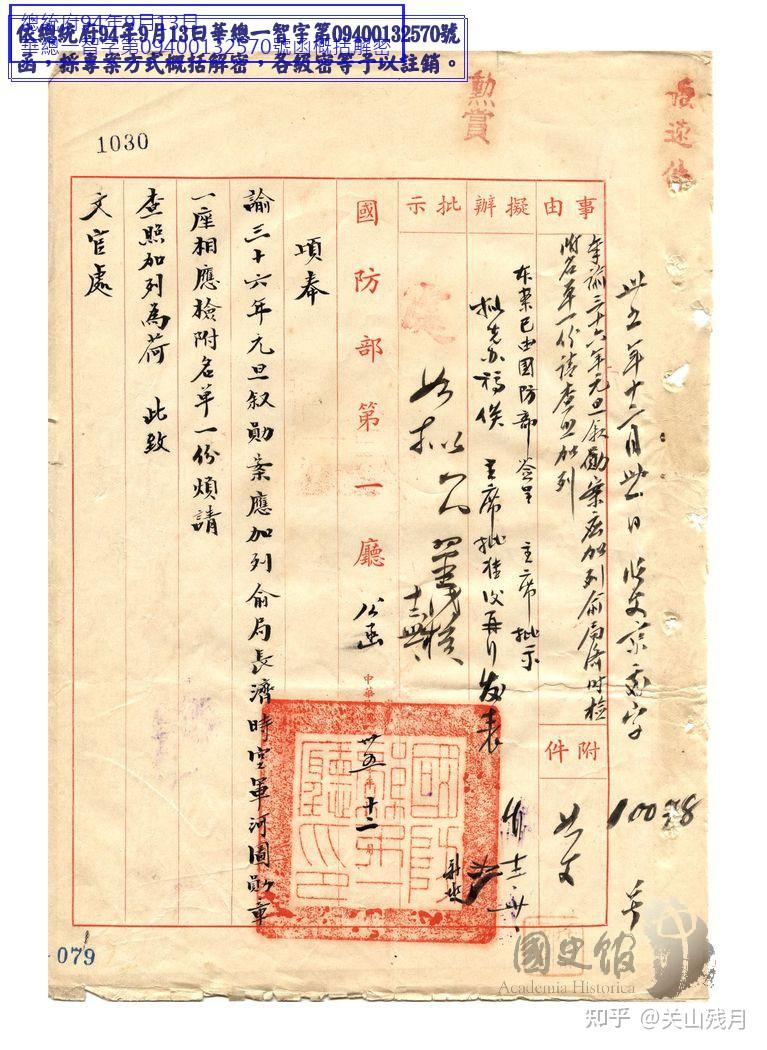 總統府94年9月13日
華總一智字第09400132570號函概括解密
依總統府94年9月13日華總一智字第09400132570號
函，採專案方式概括解密，各級密等予以註銷。
1030
勳賞
卅五年十二月卅一日收文京處字10098
事由
奉諭三十六年元旦敘勛案應加列俞局濟時檢
附名單一份請查照加列
附件
如文
擬辦
本案已由國防部簽呈 主席批示
擬先辦稿俟 主席批准後再行發表
批示
如擬
國防部第一廳 公函
中華民國卅五年十二
國防部第一廳之印
頃奉
諭三十六年元旦敘勛案應加列俞局長濟時空軍河圖勛章
一座相應檢附名單一份煩請
查照加列為荷 此致
文官處
079
國史館
Academia Historica
知乎 @关山残月